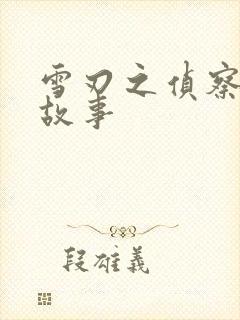 雪刃之偵察
故事
段雄義